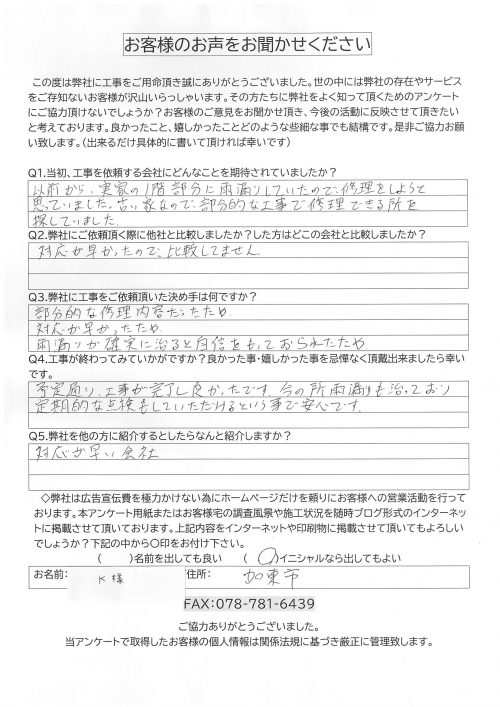 お客様のお声をお聞かせください
この度は弊社に工事をご用命頂き誠にありがとうございました。世の中には弊社の存在やサービス
をご存知ないお客様が沢山いらっしゃいます。その方たちに弊社をよく知って頂くためのアンケート
にご協力頂けないでしょうか？お客様のご意見をお聞かせ頂き、今後の活動に反映させて頂きたい
と考えております。良かったこと、嬉しかったことどのような些細な事でも結構です。是非ご協力お願
い致します。（出来るだけ具体的に書いて頂ければ幸いです）
Q1.当初、工事を依頼する会社にどんなことを期待されていましたか？
以前から、実家の1階部分に雨漏りしていたので、修理をしようと
思っていました。古い家なので、部分的な工事で修理できる所を
探していました。
Q2.弊社にご依頼頂く際に他社と比較しましたか？した方はどこの会社と比較しましたか？
対応が早かったので、比較してません。
Q3.弊社に工事をご依頼頂いた決め手は何ですか？
部分的な修理内容だったため。
対応が早かったため。
雨漏りが確実に治ると自信をもっておられたため。
Q4.工事が終わってみていかがですか？良かった事・嬉しかった事を忌憚なく頂戴出来ましたら幸い
です。
予定通り、工事が完了し良かったです。今の所雨漏りも治っており
定期的な点検もしていただけるという事で安心です。
Q5.弊社を他の方に紹介するとしたらなんと紹介しますか？
対応が早い会社
◇弊社は広告宣伝費を極力かけない為にホームページだけを頼りにお客様への営業活動を行って
おります。本アンケート用紙またはお客様宅の調査風景や施工状況を随時ブログ形式のインターネッ
トに掲載させて頂いております。上記内容をインターネットや印刷物に掲載させて頂いてもよろしい
でしょうか？下記の中から〇印をお付け下さい。
（ ）名前を出しても良い （〇）イニシャルなら出してもよい
お名前: K様 住所: 加東市
FAX:078-781-6439
ご協力ありがとうございました。
当アンケートで取得したお客様の個人情報は関係法規に基づき厳正に管理致します。